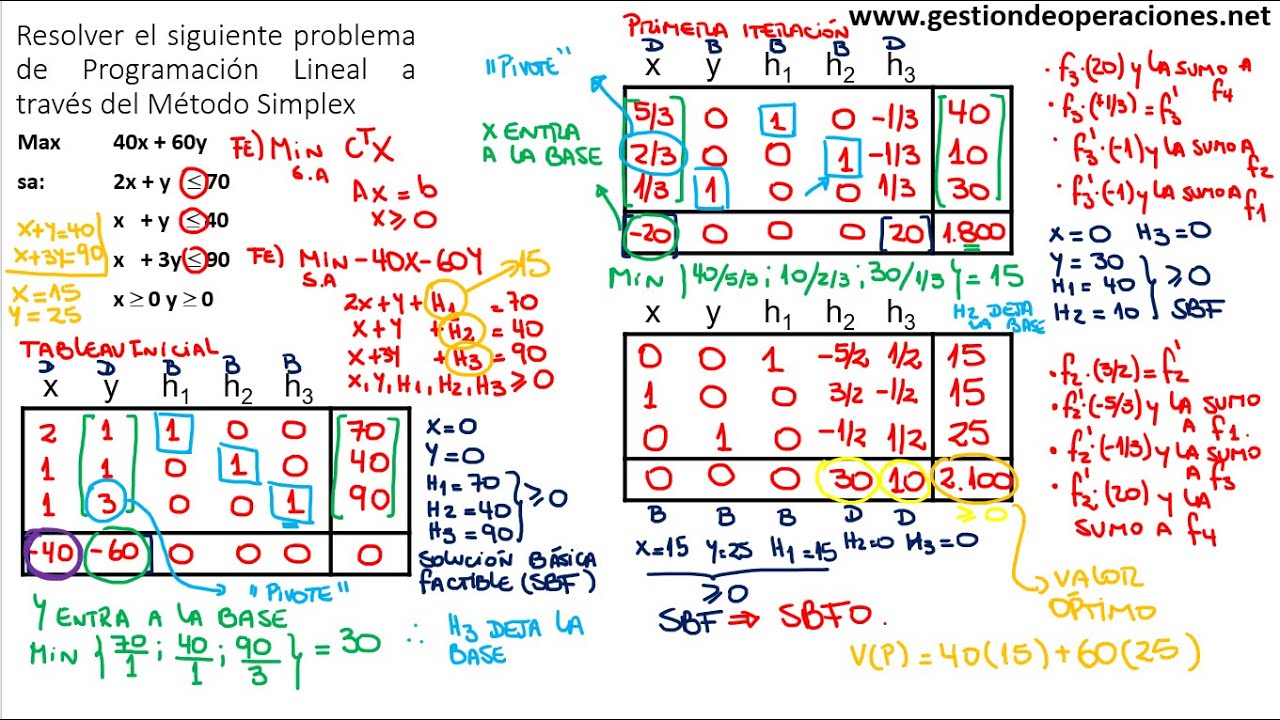 www.gestiondeoperaciones.net
Resolver el siguiente problema
de Programación Lineal a
través del Método Simplex
Max 40x + 60y
sa: 2x + y ≤ 70
x + y ≤ 40
x + 3y ≤ 90
x ≥ 0 y ≥ 0
x+y=40
x+3y=90
x=15
y=25
FE) MIN CᵀX
S.A
AX = b
X ≥ 0
FE) MIN -40X-60Y
S.A
15
2X+Y+H1 = 70
X+Y +H2 = 40
X+3Y +H3 = 90
X,Y,H1,H2,H3 ≥ 0
TABLEAU INICIAL
D D B B B
x y h1 h2 h3
2 1 1 0 0 70
1 1 0 1 0 40
1 3 0 0 1 90
-40 -60 0 0 0 0
"PIVOTE"
X=0
Y=0
H1=70
H2=40
H3=90
≥0
SOLUCIÓN BÁSICA
FACTIBLE (SBF)
Y ENTRA A LA BASE
MIN {70/1 ; 40/1 ; 90/3} = 30
∴ H3 DEJA LA
BASE
PRIMERA ITERACIÓN
D B B B D
x y h1 h2 h3
"PIVOTE"
X ENTRA
A LA BASE
5/3 0 1 0 -1/3 40
2/3 0 0 1 -1/3 10
1/3 1 0 0 1/3 30
-20 0 0 0 20 1.800
MIN {40/5/3 ; 10/2/3 ; 30/1/3} = 15
H2 DEJA
LA BASE
• f3·(20) y LA SUMO A
f4
• f3·(1/3) = f3'
• f3'·(-1) y LA SUMO A
f2
• f3'·(-1) y LA SUMO A
f1
X=0 H3=0
Y=30
H1=40
H2=10
≥0
SBF
x y h1 h2 h3
0 0 1 -5/2 1/2 15
1 0 0 3/2 -1/2 15
0 1 0 -1/2 1/2 25
0 0 0 30 10 2.100
B B B D D ≥0
X=15 Y=25 H1=15 H2=0 H3=0
≥0
SBF ⇒ SBFO.
• f2·(3/2) = f2'
• f2'·(-5/3) y LA SUMO
A f1.
• f2'·(-1/3) y LA SUMO
A f3
• f2'·(20) y LA
SUMO A f4
VALOR
ÓPTIMO
V(P) = 40(15)+60(25)